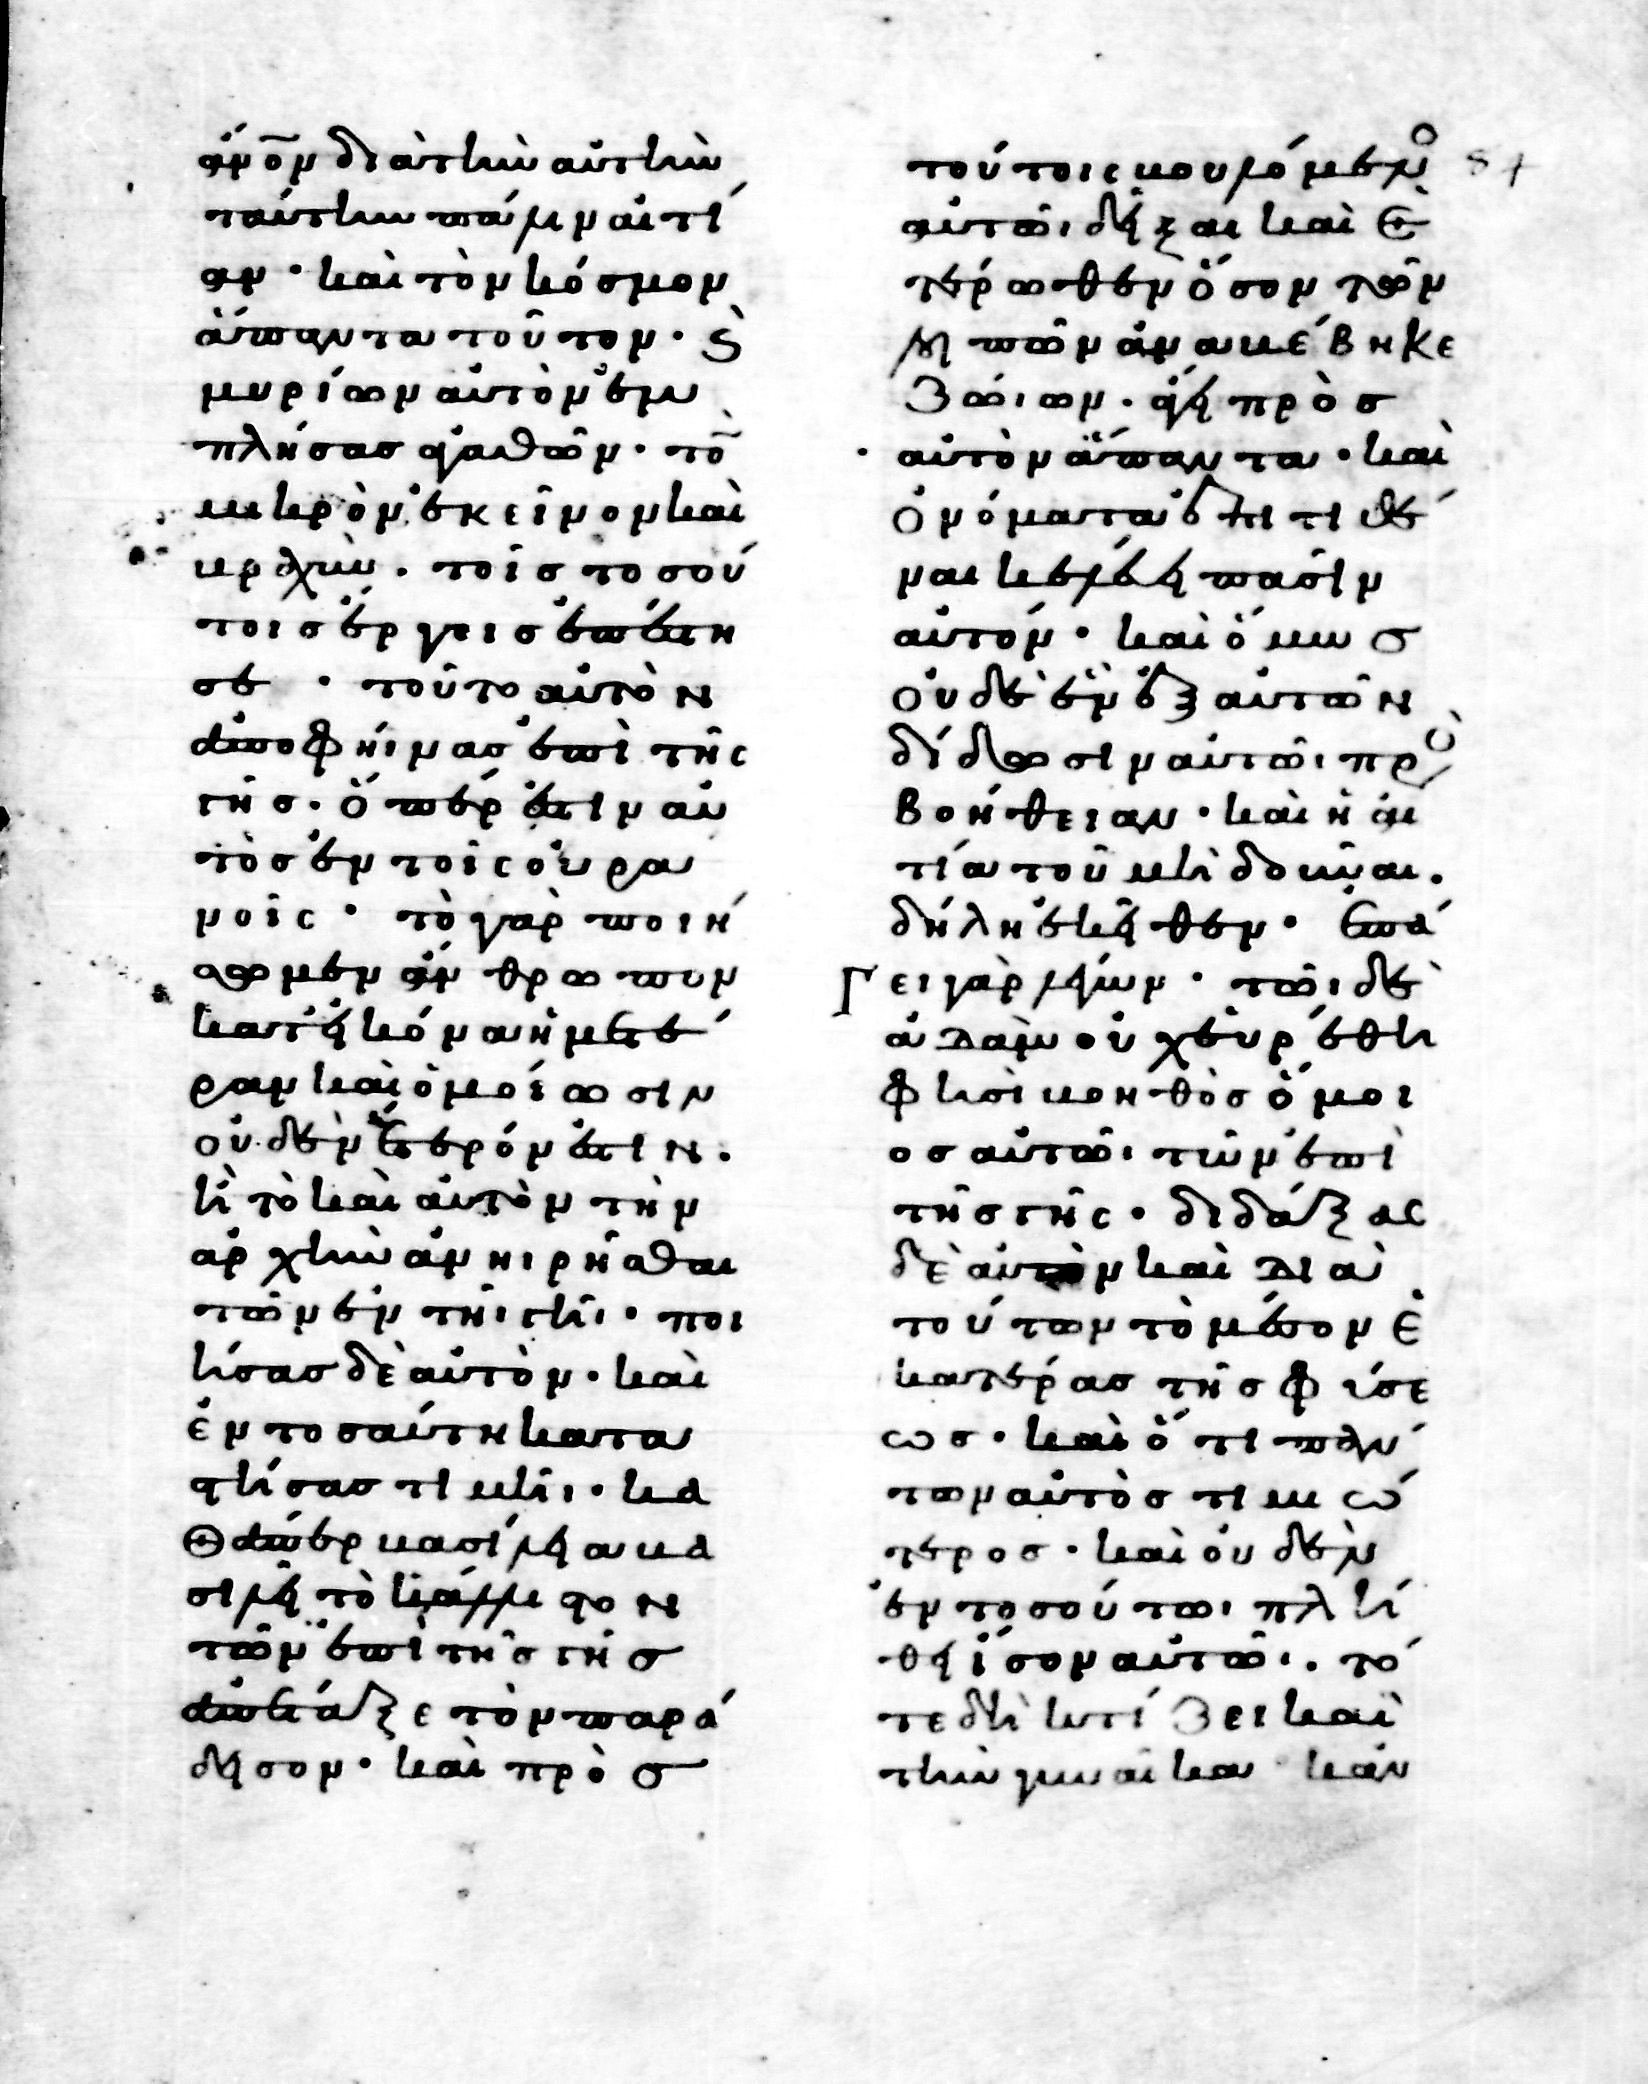 ἄνον διὰ τὴν αὐτὴν
ταύτην πάλιν αἰτί
αν · καὶ τὸν κόσμον
ἅπαντα τοῦτον · καὶ
μυρίων αὐτὸν ἐμ
πλήσας ἀγαθῶν · τὸν
μικρὸν ἐκεῖνον καὶ
τοῖς τοσού
τοις ἔργοις ἐπέστη
σε · τοῦτο αὐτὸν
ἀποφήνας ἐπὶ τῆς
γῆς · ὅπερ ἐστὶν αὐ
τὸς ἐν τοῖς οὐρα
νοῖς · τὸ γὰρ ποιή
σωμεν ἄνθρωπον
κατ' εἰκόνα ἡμετέ
ραν καὶ ὁμοίωσιν
οὐδὲν ἕτερόν ἐστιν ·
ἢ τὸ καὶ αὐτὸν τὴν
ἀρχὴν ἀνηιρῆσθαι
τῶν ἐν τῆι γῆι · ποι
ήσας δὲ αὐτὸν · καὶ
ἐν τοσαύτη κατα
στήσας τιμῆι · κα
θάπερ βασιλεῖ βα
σίλεια τὸ κάλλιστον
τῶν ἐπὶ τῆς γῆς
ἀπέταξε τὸν παρά
δεισον · καὶ πρὸς
τούτοις βουλόμενος
αὐτῶι δεῖξαι καὶ ἑ
τέρωθεν ὅσον τῶν
λοιπῶν ἀναβέβηκε
ζώιων · ἄγει πρὸς
αὐτὸν ἅπαντα · καὶ
ὀνόματα ἐπιτιθέ
ναι κελεύει πᾶσιν
αὐτόν · καὶ ὅμως
οὐδὲ ἓν ἐξ αὐτῶν
δίδωσιν αὐτῶι πρὸς
βοήθειαν · καὶ ἡ αἰ
τία τοῦ μὴ δοῦναι ·
δήλη ἐκεῖθεν · ἐπά
γει γὰρ λέγων · τῶι δὲ
ἀδὰμ οὐχ εὑρέθη
φησὶ βοηθὸς ὅμοι
ος αὐτῶι τῶν ἐπὶ
τῆς γῆς · διδάξας
δὲ αὐτὸν καὶ διὰ
τούτων τὸ μέσον ἑ
κατέρας τῆς φύσε
ως · καὶ ὅτι πάν
των αὐτὸς τιμιώ
τερος · καὶ οὐδὲν
ἐν τοσούτωι πλή
θει ἴσον αὐτῶι · τό
τε δὴ κτίζει καὶ
τὴν γυναῖκα καὶ